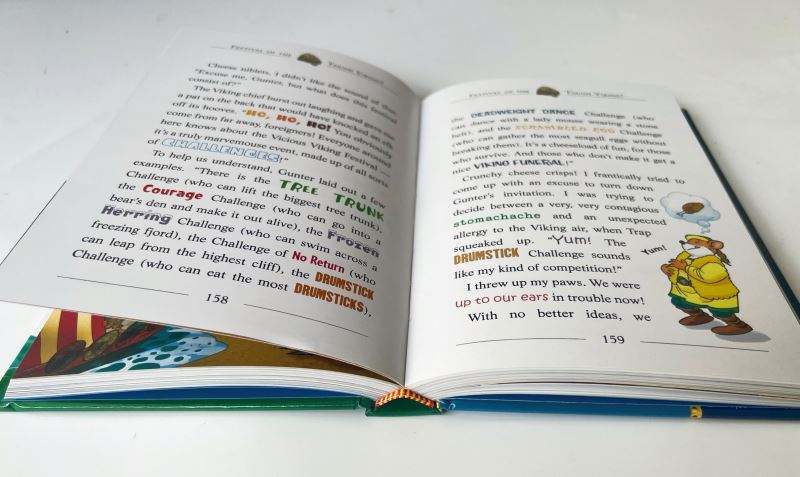 FESTIVAL OF THE
Cheese niblets, I didn't like the sound of that.
"Excuse me, Gunter, but what does this festival
consist of?"
The Viking chief burst out laughing and gave me
a pat on the back that would have knocked an elk
off its hooves. "HO, HO, HO! You obviously
come from far away, foreigners! Everyone around
here knows about the Vicious Viking Festival —
it's a truly marvemouse event, made up of all sorts
of CHALLENGES!"
To help us understand, Gunter laid out a few
examples. "There is the TREE TRUNK
Challenge (who can lift the biggest tree trunk),
the Courage Challenge (who can go into a
bear's den and make it out alive), the Frozen
Herring Challenge (who can swim across a
freezing fjord), the Challenge of No Return (who
can leap from the highest cliff), the DRUMSTICK
Challenge (who can eat the most DRUMSTICKS),
158
FESTIVAL OF THE
the DEADWEIGHT DANCE Challenge (who
can dance with a lady mouse wearing a stone
belt), and the SCRAMBLED EGG Challenge
(who can gather the most seagull eggs without
breaking them). It's a cheeseload of fun, for those
who survive. And those who don't make it get a
nice VIKING FUNERAL!"
Crunchy cheese crisps! I frantically tried to
come up with an excuse to turn down
Gunter's invitation. I was trying to
decide between a very, very contagious
stomachache and an unexpected
allergy to the Viking air, when Trap
squeaked up. "Yum! The
DRUMSTICK Challenge sounds
like my kind of competition!"
Yum!
I threw up my paws. We were
up to our ears in trouble now!
With no better ideas, we
159